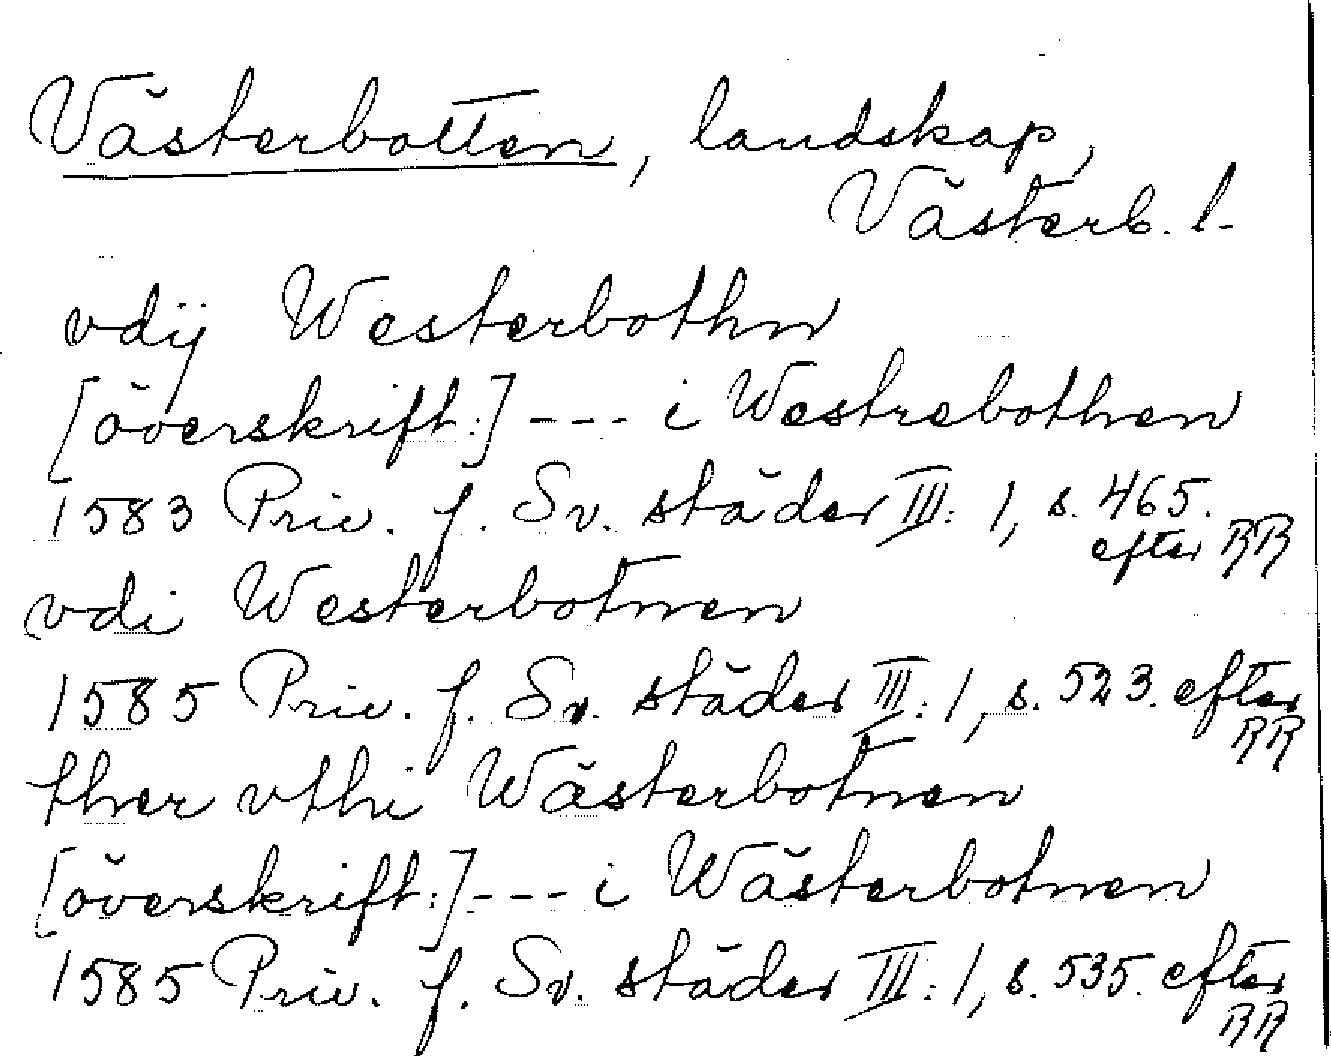 Västerbotten, landskap,
Västerb. l.
vdij Westerbothn
[överskrift:] --- i Westrebothen
1583 Priv. f. Sv. städer III: 1, s. 465.
efter RR
vdi Westerbotnen
1585 Priv. f. Sv. städer III: 1, s. 523. efter
RR
ther vthi Wästerbotnen
[överskrift:] --- i Wästerbotnen
1585 Priv. f. Sv. städer III: 1, s. 535. efter
RR